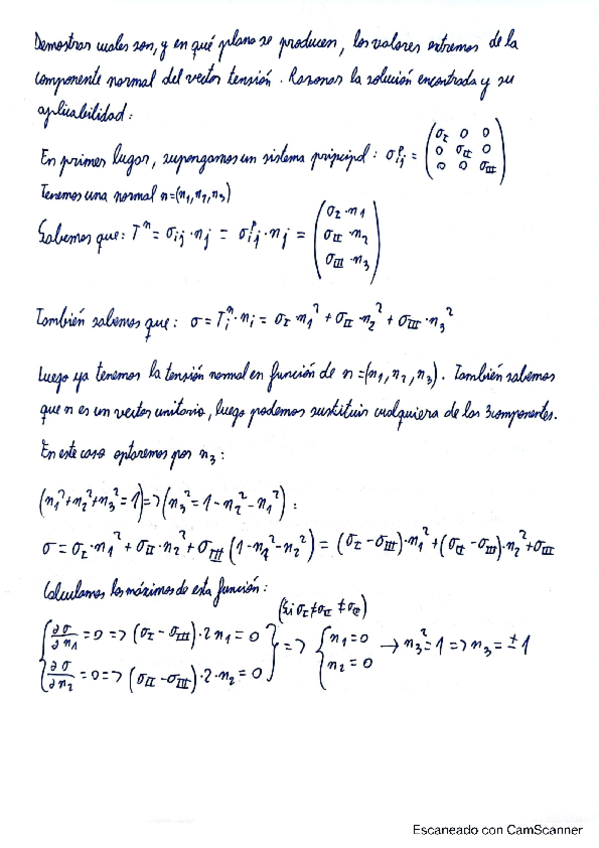 Demostrar cuales son, y en qué plano se producen, los valores extremos de la
componente normal del vector tensión. Razonar la solución encontrada y su
aplicabilidad:
En primer lugar, supongamos un sistema principal: σᵢⱼᵖ = (σ_I 0 0; 0 σ_II 0; 0 0 σ_III)
Tenemos una normal n=(n₁,n₂,n₃)
Sabemos que: Tⁿ = σᵢⱼ·nⱼ = σᵢⱼᵖ·nⱼ = (σ_I·n₁; σ_II·n₂; σ_III·n₃)
También sabemos que: σ = Tᵢⁿ·nᵢ = σ_I·n₁² + σ_II·n₂² + σ_III·n₃²
Luego ya tenemos la tensión normal en función de n=(n₁,n₂,n₃). También sabemos
que n es un vector unitario, luego podemos sustituir cualquiera de las 3 componentes.
En este caso optaremos por n₃:
(n₁²+n₂²+n₃²=1)=>(n₃²=1-n₂²-n₁²):
σ=σ_I·n₁²+σ_II·n₂²+σ_III(1-n₁²-n₂²)=(σ_I-σ_III)·n₁²+(σ_II-σ_III)·n₂²+σ_III
Calculamos los máximos de esta función:
(Si σ_I≠σ_II≠σ_III)
{∂σ/∂n₁=0=>(σ_I-σ_III)·2n₁=0; ∂σ/∂n₂=0=>(σ_II-σ_III)·2·n₂=0}=>{n₁=0; n₂=0→n₃²=1=>n₃=±1
Escaneado con CamScanner